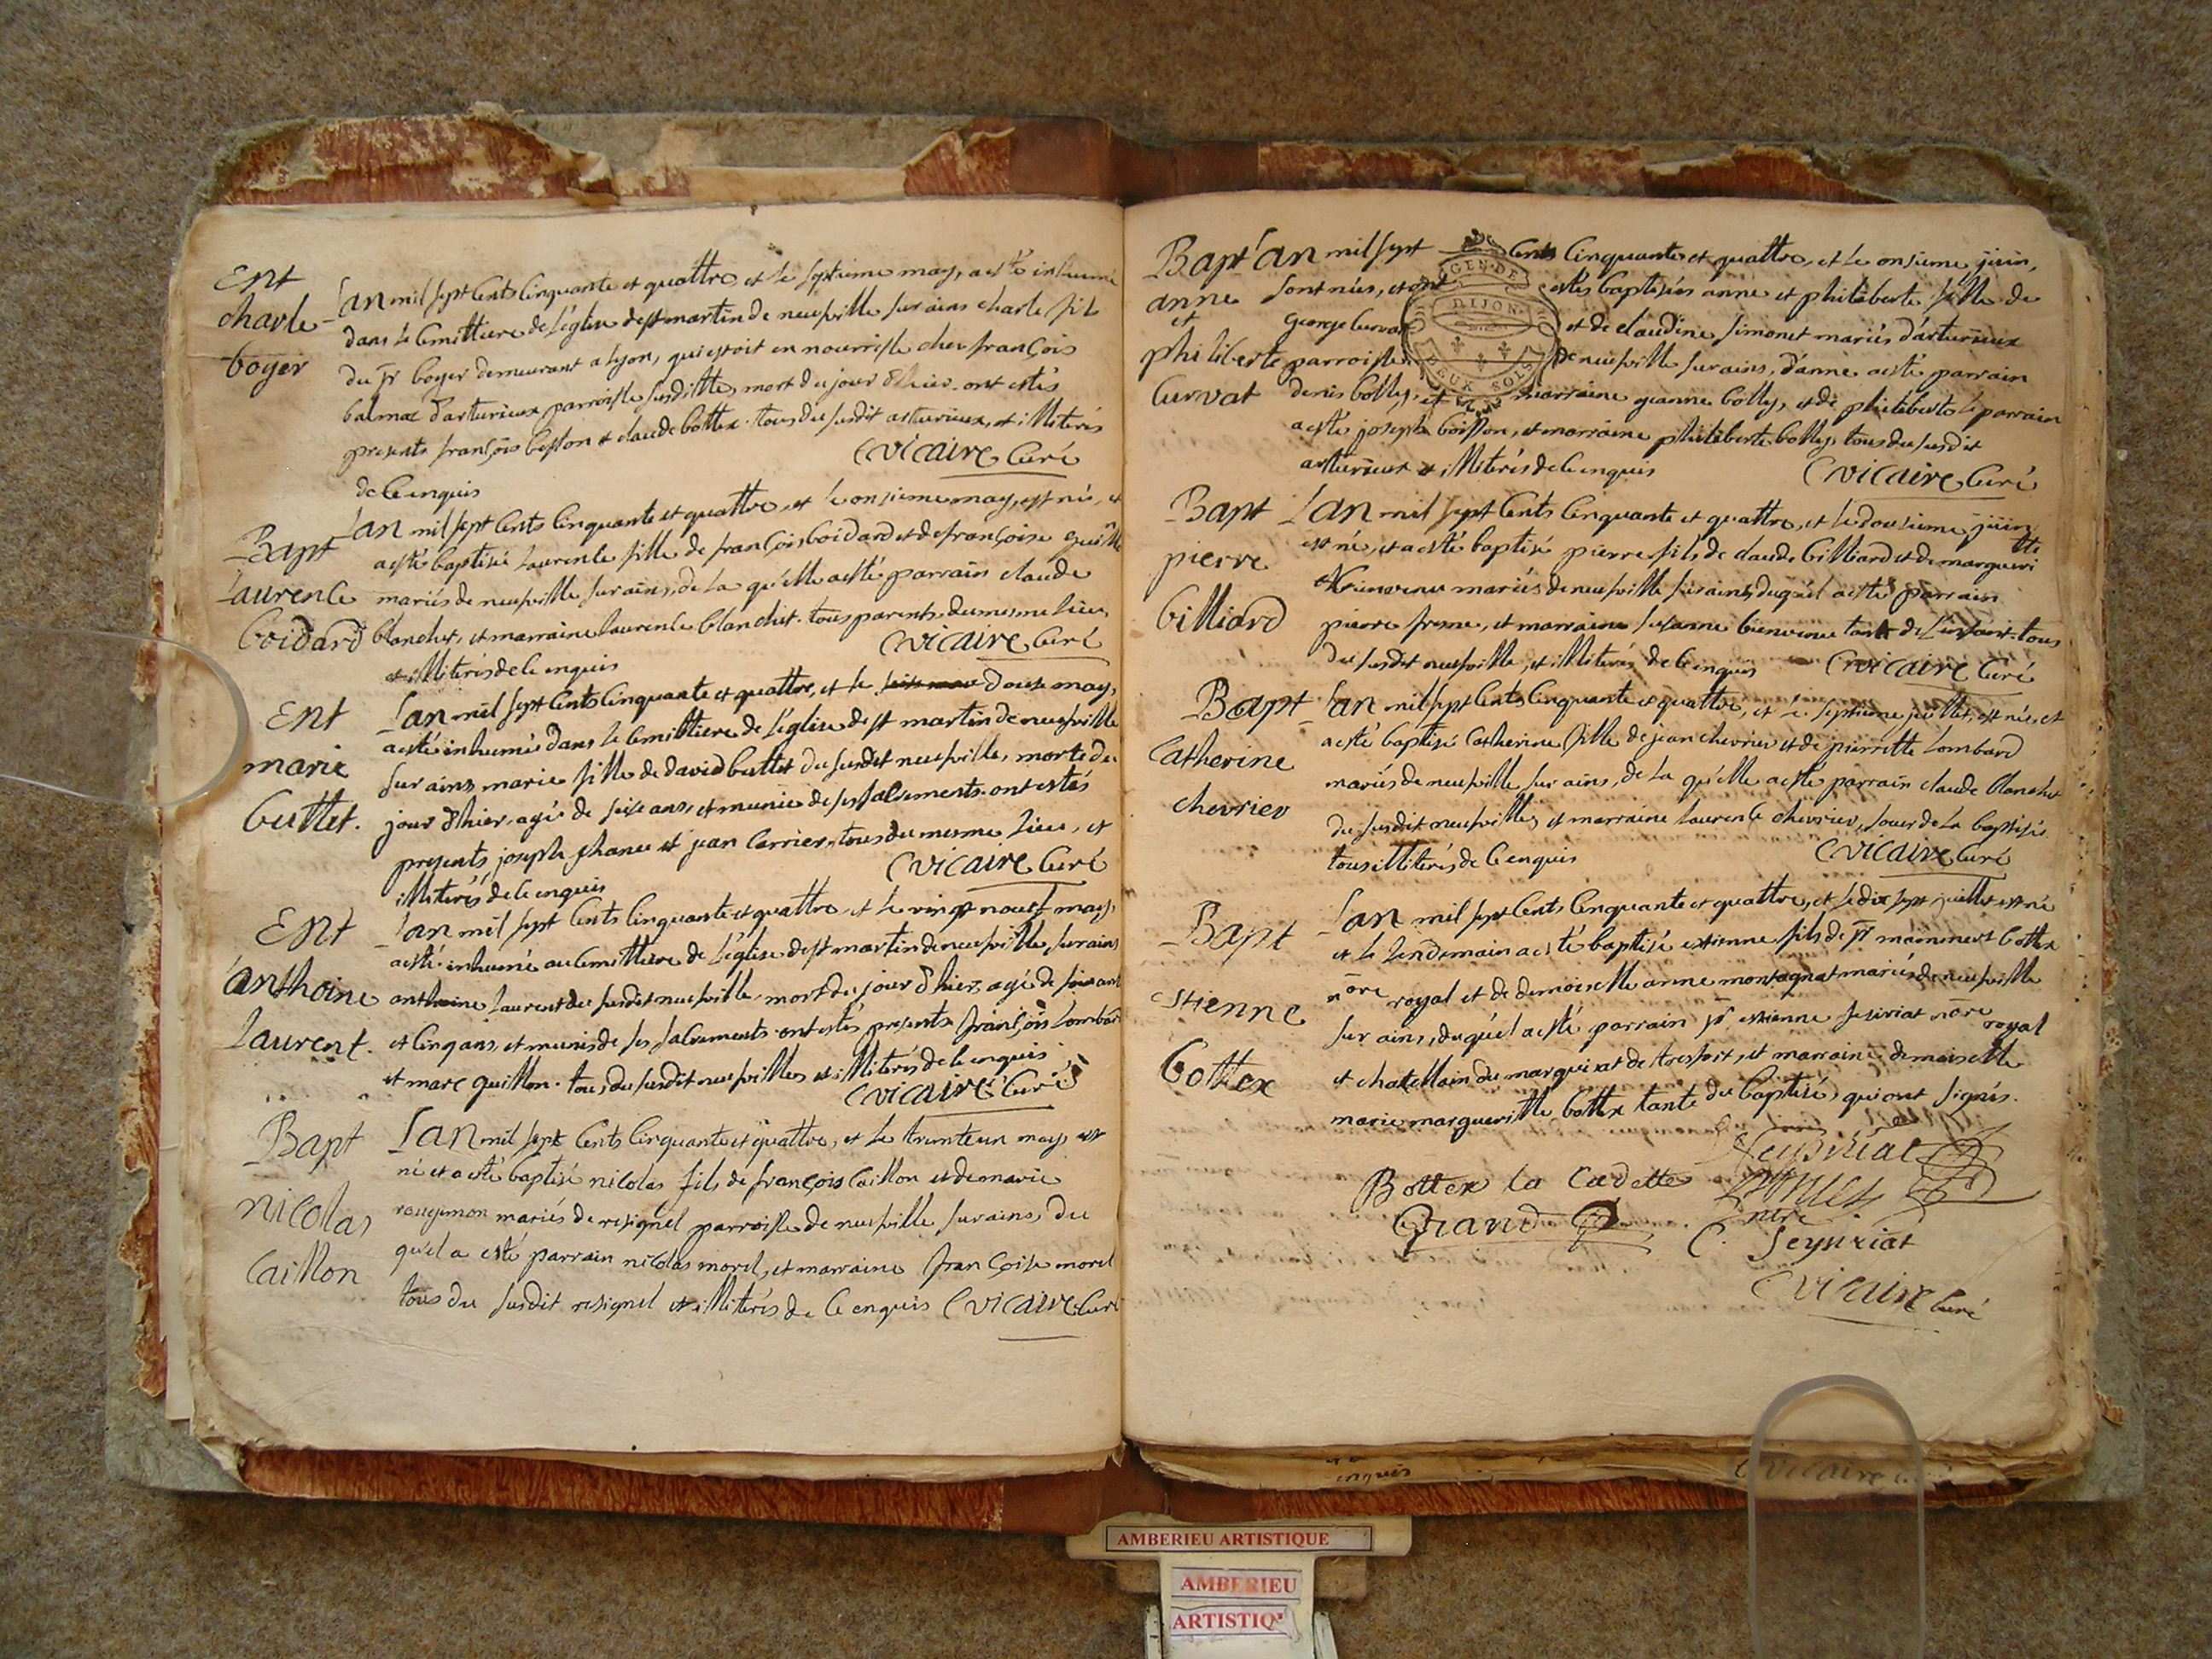 Ent
charle
boyer
L'an mil sept Cents Cinquante et quattre, et le septieme may, a esté inhumé
dans le Cemittiere de l'église de st martin de neufville sur ains charle fils
du sr boyer demeurant a lyon, qui estoit en nourrisse ches françois
balmat d'arturieux, parroisse susditte, mort du jour d'hier. ont estés
presents françois besson et claude bottex. tous du susdit arturieux, et illiterés
de ce enquis
Vicaire Curé
Bapt
Laurence
boidard
L'an mil sept Cents Cinquante et quattre, et le onsieme may, est née, et
a esté baptisée Laurence fille de françois boidard et de françoise
mariés de neufville sur ains, de la qu'elle a esté parrain claude
blanchet, et marraine laurence blanchet. tous parents. du mesme lieu,
et illiterés de ce enquis
Vicaire Curé
Ent
marie
buttet.
L'an mil sept Cents Cinquante et quattre, et le douse may,
a esté inhumée dans le Cemittiere de l'église de st martin de neufville
sur ains, marie fille de david buttet du susdit neufville, morte du
jour d'hier, agée de seise ans, et munie de ses sacrements. ont estés
presents, joseph et jean Carrier. tous du mesme lieu, et
illiterés de ce enquis
Vicaire Curé
Ent
anthoine
Laurent.
L'an mil sept Cents Cinquante et quattre, et le vingt neuf may,
a esté inhumé au Cemittiere de l'église de st martin de neufville, sur ains
anthoine Laurent du susdit neufville. mort du jour d'hier, agé de soixante
et Cinq ans, et munis de ses sacrements. ont estés presents françois Lombard
et marc guillon. tous du susdit neufville, et illiterés de ce enquis
Vicaire Curé
Bapt
nicolas
Caillon
L'an mil sept Cents Cinquante et quattre, et le trente un may, est
né et a esté baptisé nicolas fils de françois Caillon et de marie
rougemon mariés de resignel parroisse de neufville sur ains, du
qu'el a esté parrain nicolas morel, et marraine françoise morel
tous du susdit resignel et illiterés de ce enquis Vicaire Curé
Bapt
anne
et
philiberte
Curvat
L'an mil sept Cents Cinquante et quattre, et le onsieme juin,
sont nées, et ont estés baptisées anne et philiberte fille de
george Curvat et de claudine simonet mariés d'arturieux
parroisse de neufville sur ains, d'anne a esté parrain
denis bolly, et marraine jeanne bolly, et de philiberte le parrain
a esté joseph boisson, et marraine philiberte bolly, tous du susdit
arturieux et illiterés de ce enquis
Vicaire Curé
GEN. DE
DIJON.
DEUX SOLS
Bapt
pierre
billiard
L'an mil sept Cents Cinquante et quattre, et le dousieme juin
est né, et a esté baptisé pierre fils de claude billiard et de margueritte
bienvenue mariés de neufville sur ains, duquel a esté parrain
pierre fresne, et marraine susanne bienvenue tante de l'enfant. tous
du susdit neufville, et illiterés de ce enquis
Vicaire Curé
Bapt
Catherine
chevrier
L'an mil sept Cents Cinquante et quattre, et le septieme juillet, est née, et
a esté baptisé Catherine fille de jean chevrier et de pierrette Lombard
mariés de neufville sur ains, de la qu'elle a esté parrain claude blanchet
du susdit neufville, et marraine laurence chevrier, soeur de la baptisée
tous illiterés de ce enquis
Vicaire Curé
Bapt
Stienne
bottex
L'an mil sept Cents Cinquante et quattre, et le dix sept juillet est né
et le lendemain a esté baptisé estienne fils de sr maimmert bottex
nore royal et de demoiselle anne montagnat mariés de neufville
sur ains, duquel a esté parrain sr estienne seisiriat nore royal
et chatellain du marquisat de tresfort, et marraine demoiselle
marie margueritte bottex tante du baptisé, qui ont signés.
Bottex la Cadette
Grand
Seyssiriat
C. Seyssiriat
Vicaire Curé
enquis
Vicaire
AMBERIEU ARTISTIQUE
AMBERIEU
ARTISTIQ